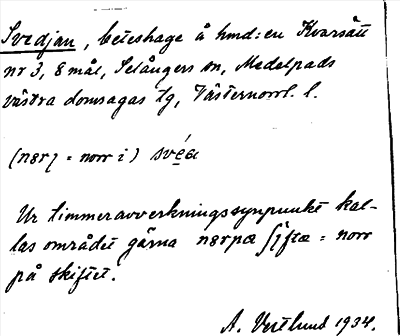 Svedjan, beteshage å hmd:en Kvarsätt
nr 3, 8 mål, Selångers sn, Medelpads
västra domsagas tg, Västernorrl. l.
(nɐrɩ = norr i) svéa
Ur timmeravverkningssynpunkt kal-
las området gärna nɐrpæ ʃiftæ = norr
på skiftet.
A. Vestlund 1934.